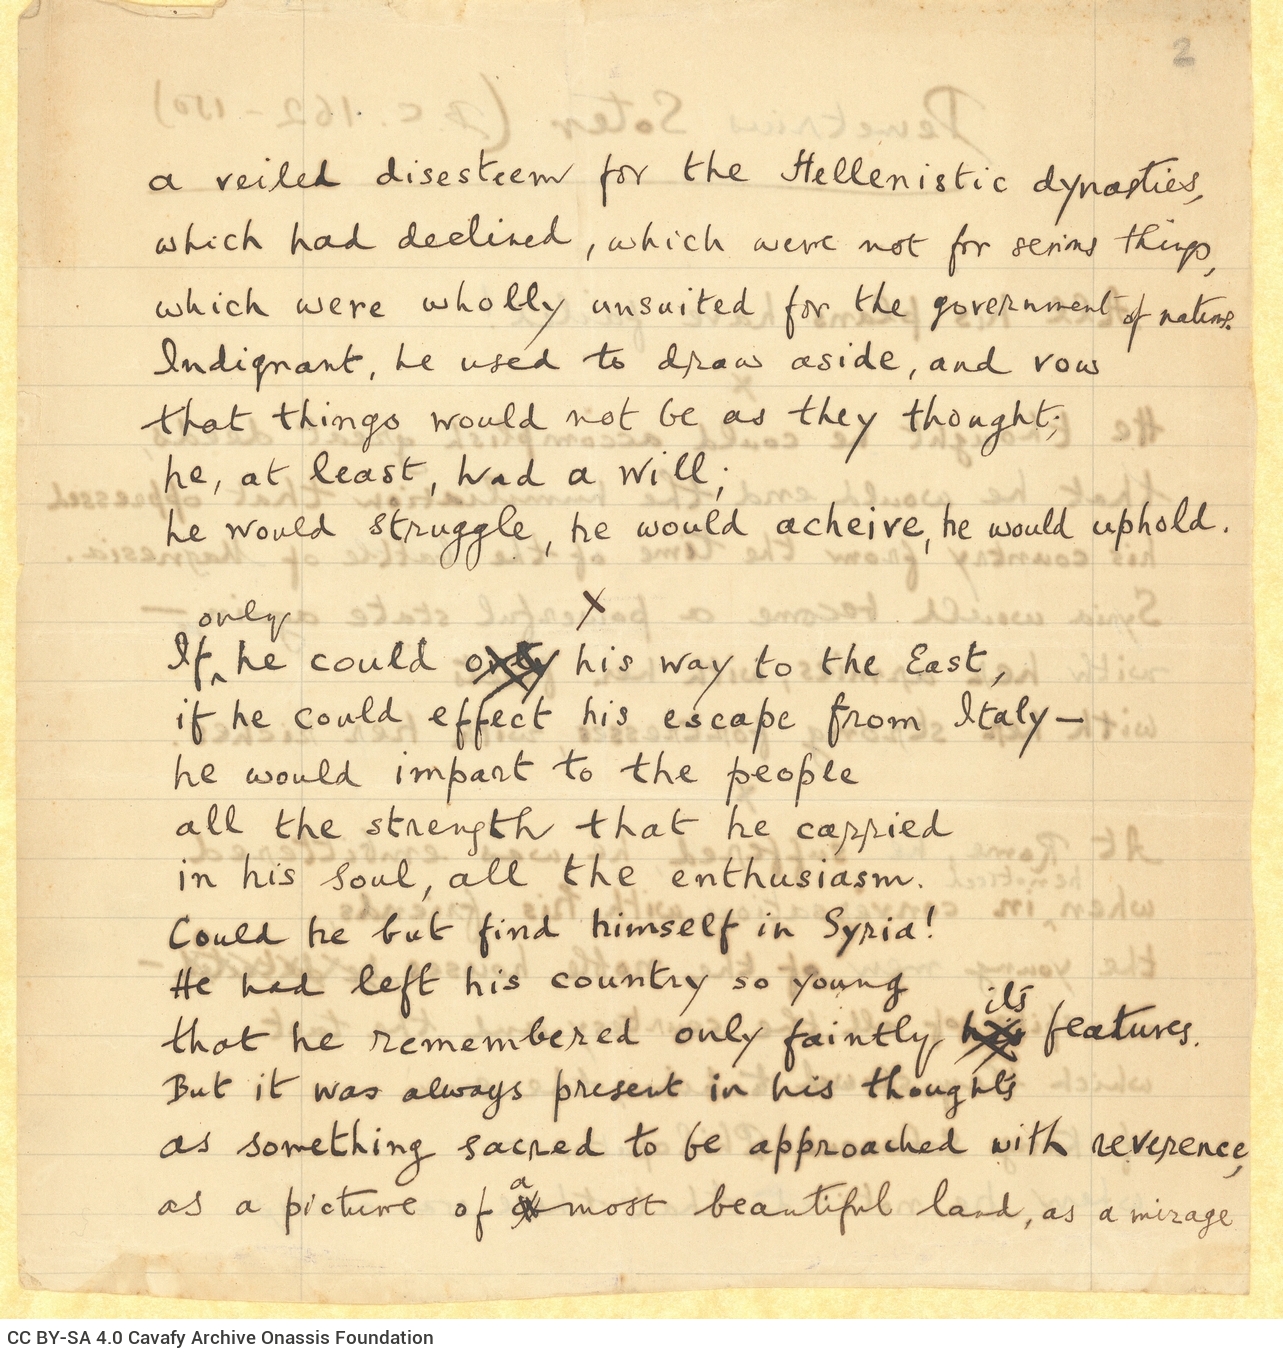 2
a veiled disesteem for the Hellenistic dynasties,
which had declined, which were not for serious things,
which were wholly unsuited for the government of nations.
Indignant, he used to draw aside, and vow
that things would not be as they thought;
he, at least, had a will;
he would struggle, he would acheive, he would uphold.
X
only
If he could only his way to the East,
if he could effect his escape from Italy—
he would impart to the people
all the strength that he carried
in his soul, all the enthusiasm.
Could he but find himself in Syria!
He had left his country so young
its
that he remembered only faintly his features.
But it was always present in his thoughts
as something sacred to be approached with reverence,
a
as a picture of most beautiful land, as a mirage
CC BY-SA 4.0 Cavafy Archive Onassis Foundation